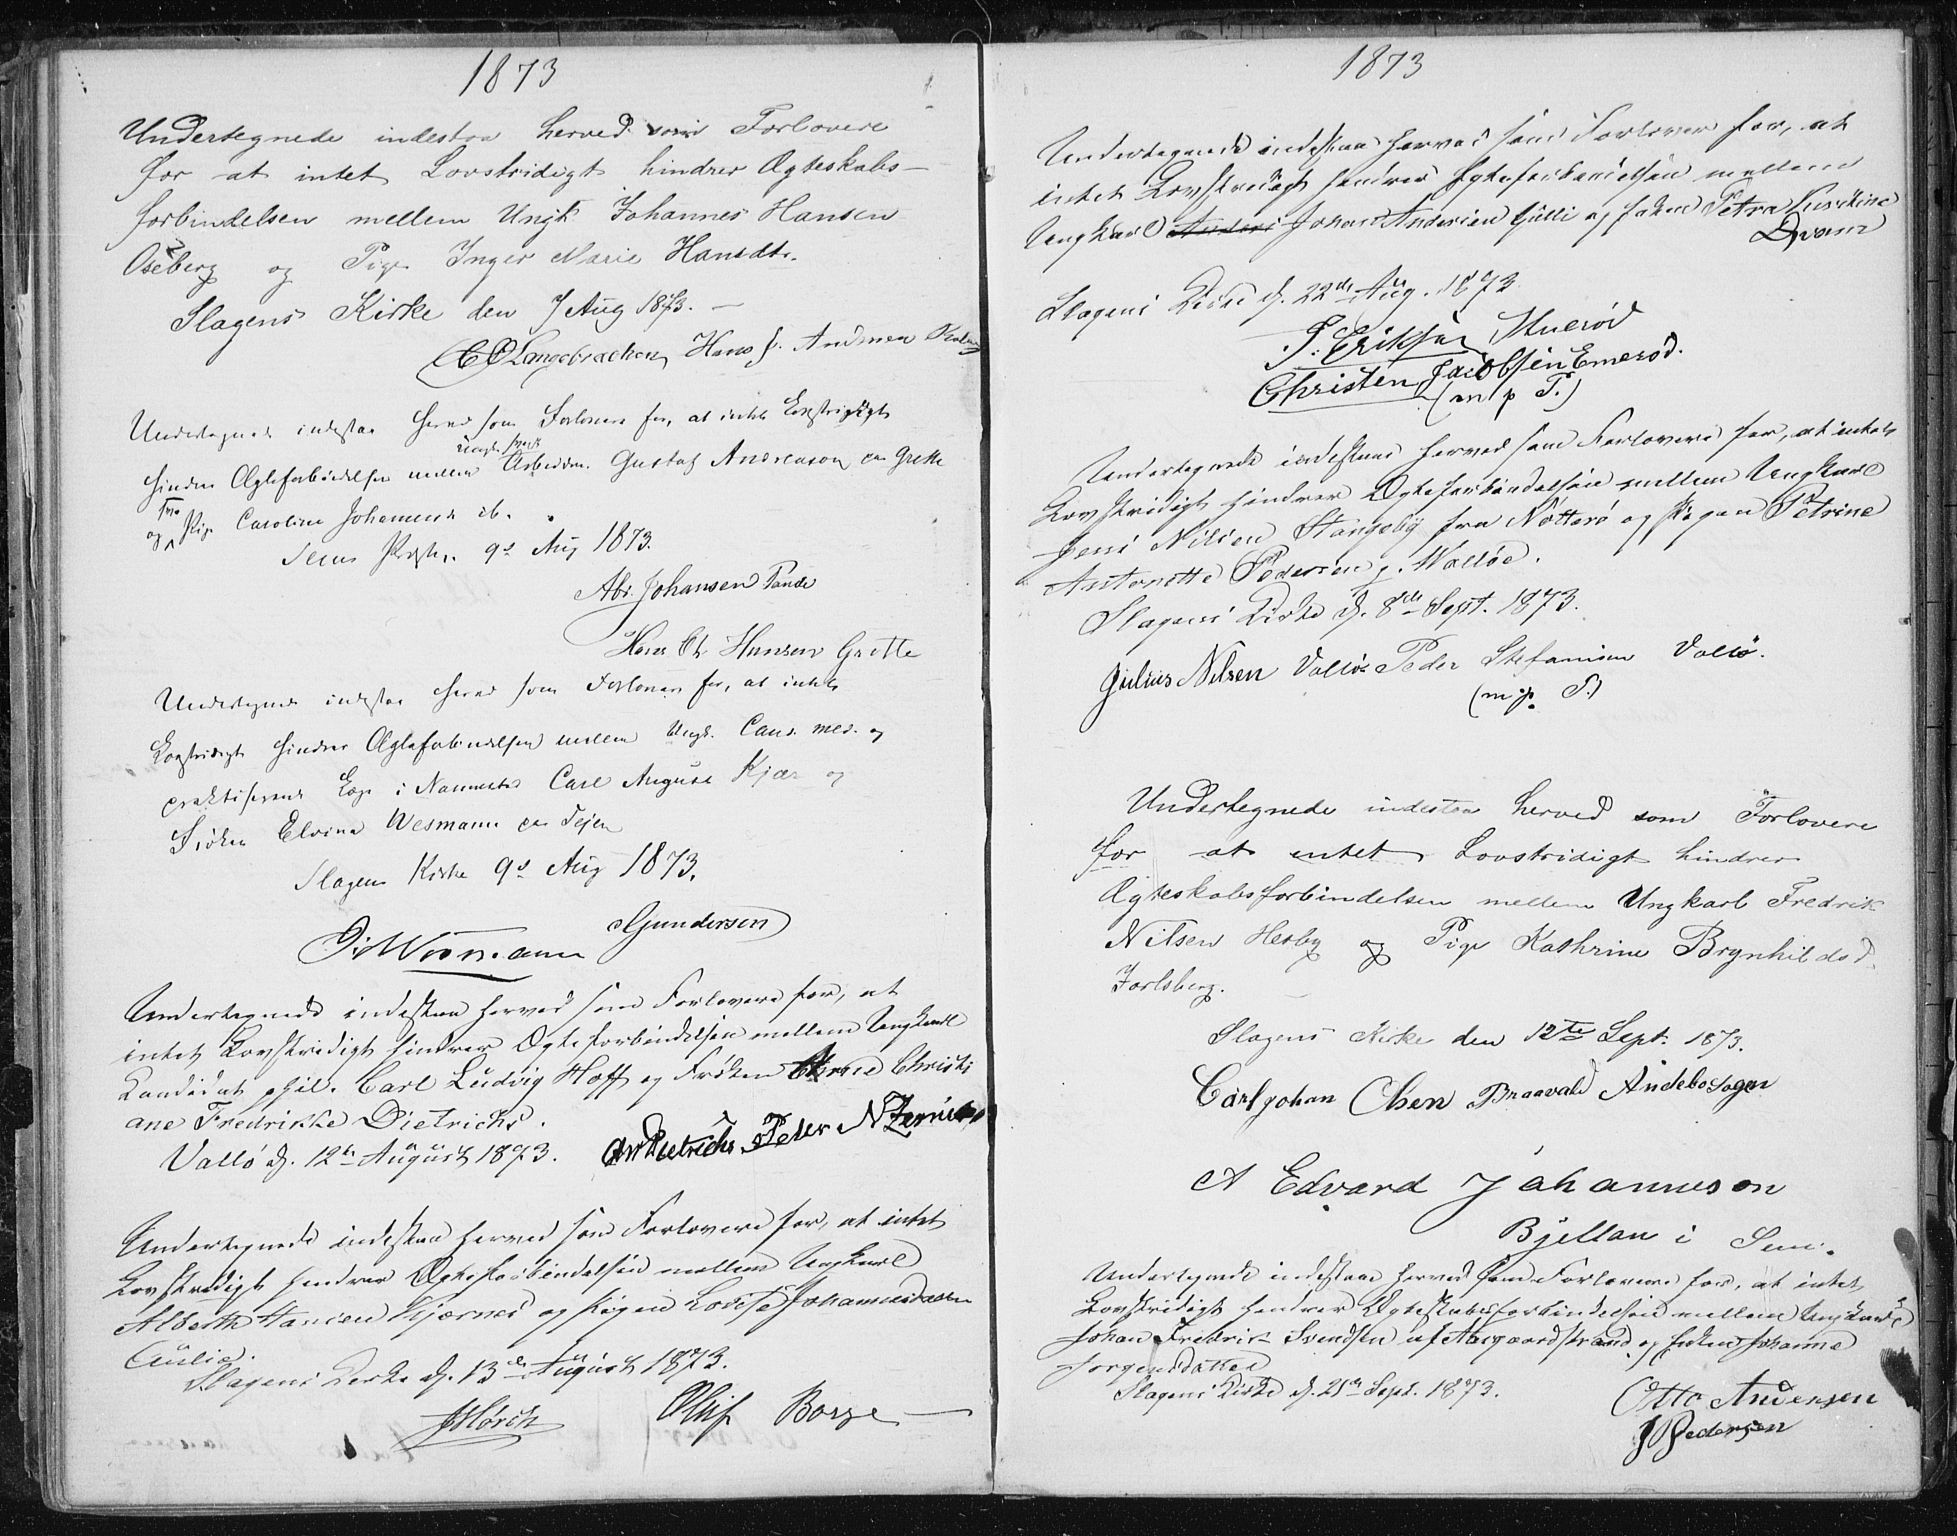 1873
Undertegnede indestaa herved som Forlovere
for at intet Lovstridigt hindrer Ægteskabs-
forbindelsen mellem Ungk. Johannes Hansen
Oseberg og Pige Inger Marie Hansdtr.
Slagens Kirke den 7 Aug 1873. —
Hans J. Andersen
Undertegnede indestaa herved som Forlovere for, at intet Lovstridigt
hindrer Ægteforbindelsen mellem Ungk. Arbeidsm. Gustaf Andreason paa Grette
og Pige Caroline Johannesen ib.
9d Aug 1873.
Abr. Johansen Tande
Hans Chr. Hansen Grette
Undertegnede indestaa herved som Forlovere for, at intet
Lovstridigt hindrer Ægteforbindelsen mellem Ungk. Cand. med. og
praktiserende Læge i Carl August Kjær og
Frøken Elvina Wesmann paa Tejen
Slagens Kirke 9d Aug 1873.
Gundersen
Undertegnede indestaa herved som Forlovere for, at
intet Lovstridigt hindrer Ægteforbindelsen mellem Ungkarl
Kandidat phil. Carl Ludvig Hoff og Frøken Christi
ane Fredrikke Dietrichs.
Vallø d. 12te August 1873. Dietrichs Peder N
Undertegnede indestaa herved som Forlovere for, at intet
Lovstridigt hindrer Ægteforbindelsen mellem Ungkarl
Alberth Hansen Kjærnes og Pigen Lovise Johannesdatter
Aulie.
Slagens Kirke d. 13de August 1873.
Mørch Oluf Borge
1873
Undertegnede indestaa herved som Forlover for, at
intet Lovstridigt hindrer Ægteforbindelsen mellem
Ungkarl Anders Johan Andersen Gulli og Frøken Petra Kirstine
Qvam
Slagens Kirke d. 22de Aug. 1873
Eriksen
Christen Jacobsen Emerød.
(m p P.)
Undertegnede indestaa herved som Forlovere for, at intet
Lovstridigt hindrer Ægteforbindelsen mellem Ungkarl
Jens Nilsen Stangeby fra Nøtterø og Pigen Petrine
Antonette Pedersen p. Walløe.
Slagens Kirke d. 8de Sept. 1873.
Julius Nilsen Vallø. Peder Stefansen Vallø.
(m. p. P.)
Undertegnede indestaa herved som Forlovere
for at intet Lovstridigt hindrer
Ægteskabsforbindelsen mellem Ungkarl Fredrik
Nilsen Hesby og Pige Kathrine Brynhildsd.
Jarlsberg.
Slagens Kirke den 12te Sept. 1873.
Carl johan Olsen Braavald Andebo sogen
A Edvard Johanneson
Bjelland i Sem.
Undertegnede indestaa herved som Forlovere for, at intet
Lovstridigt hindrer Ægteskabsforbindelsen mellem Ungkarl
Johan Fredrik Svendsen af Aasgaardstrand og Enken Johanne
Jorgensdatter
Slagens Kirke d. 21de Sept. 1873.
Otto Andersen
Pedersen